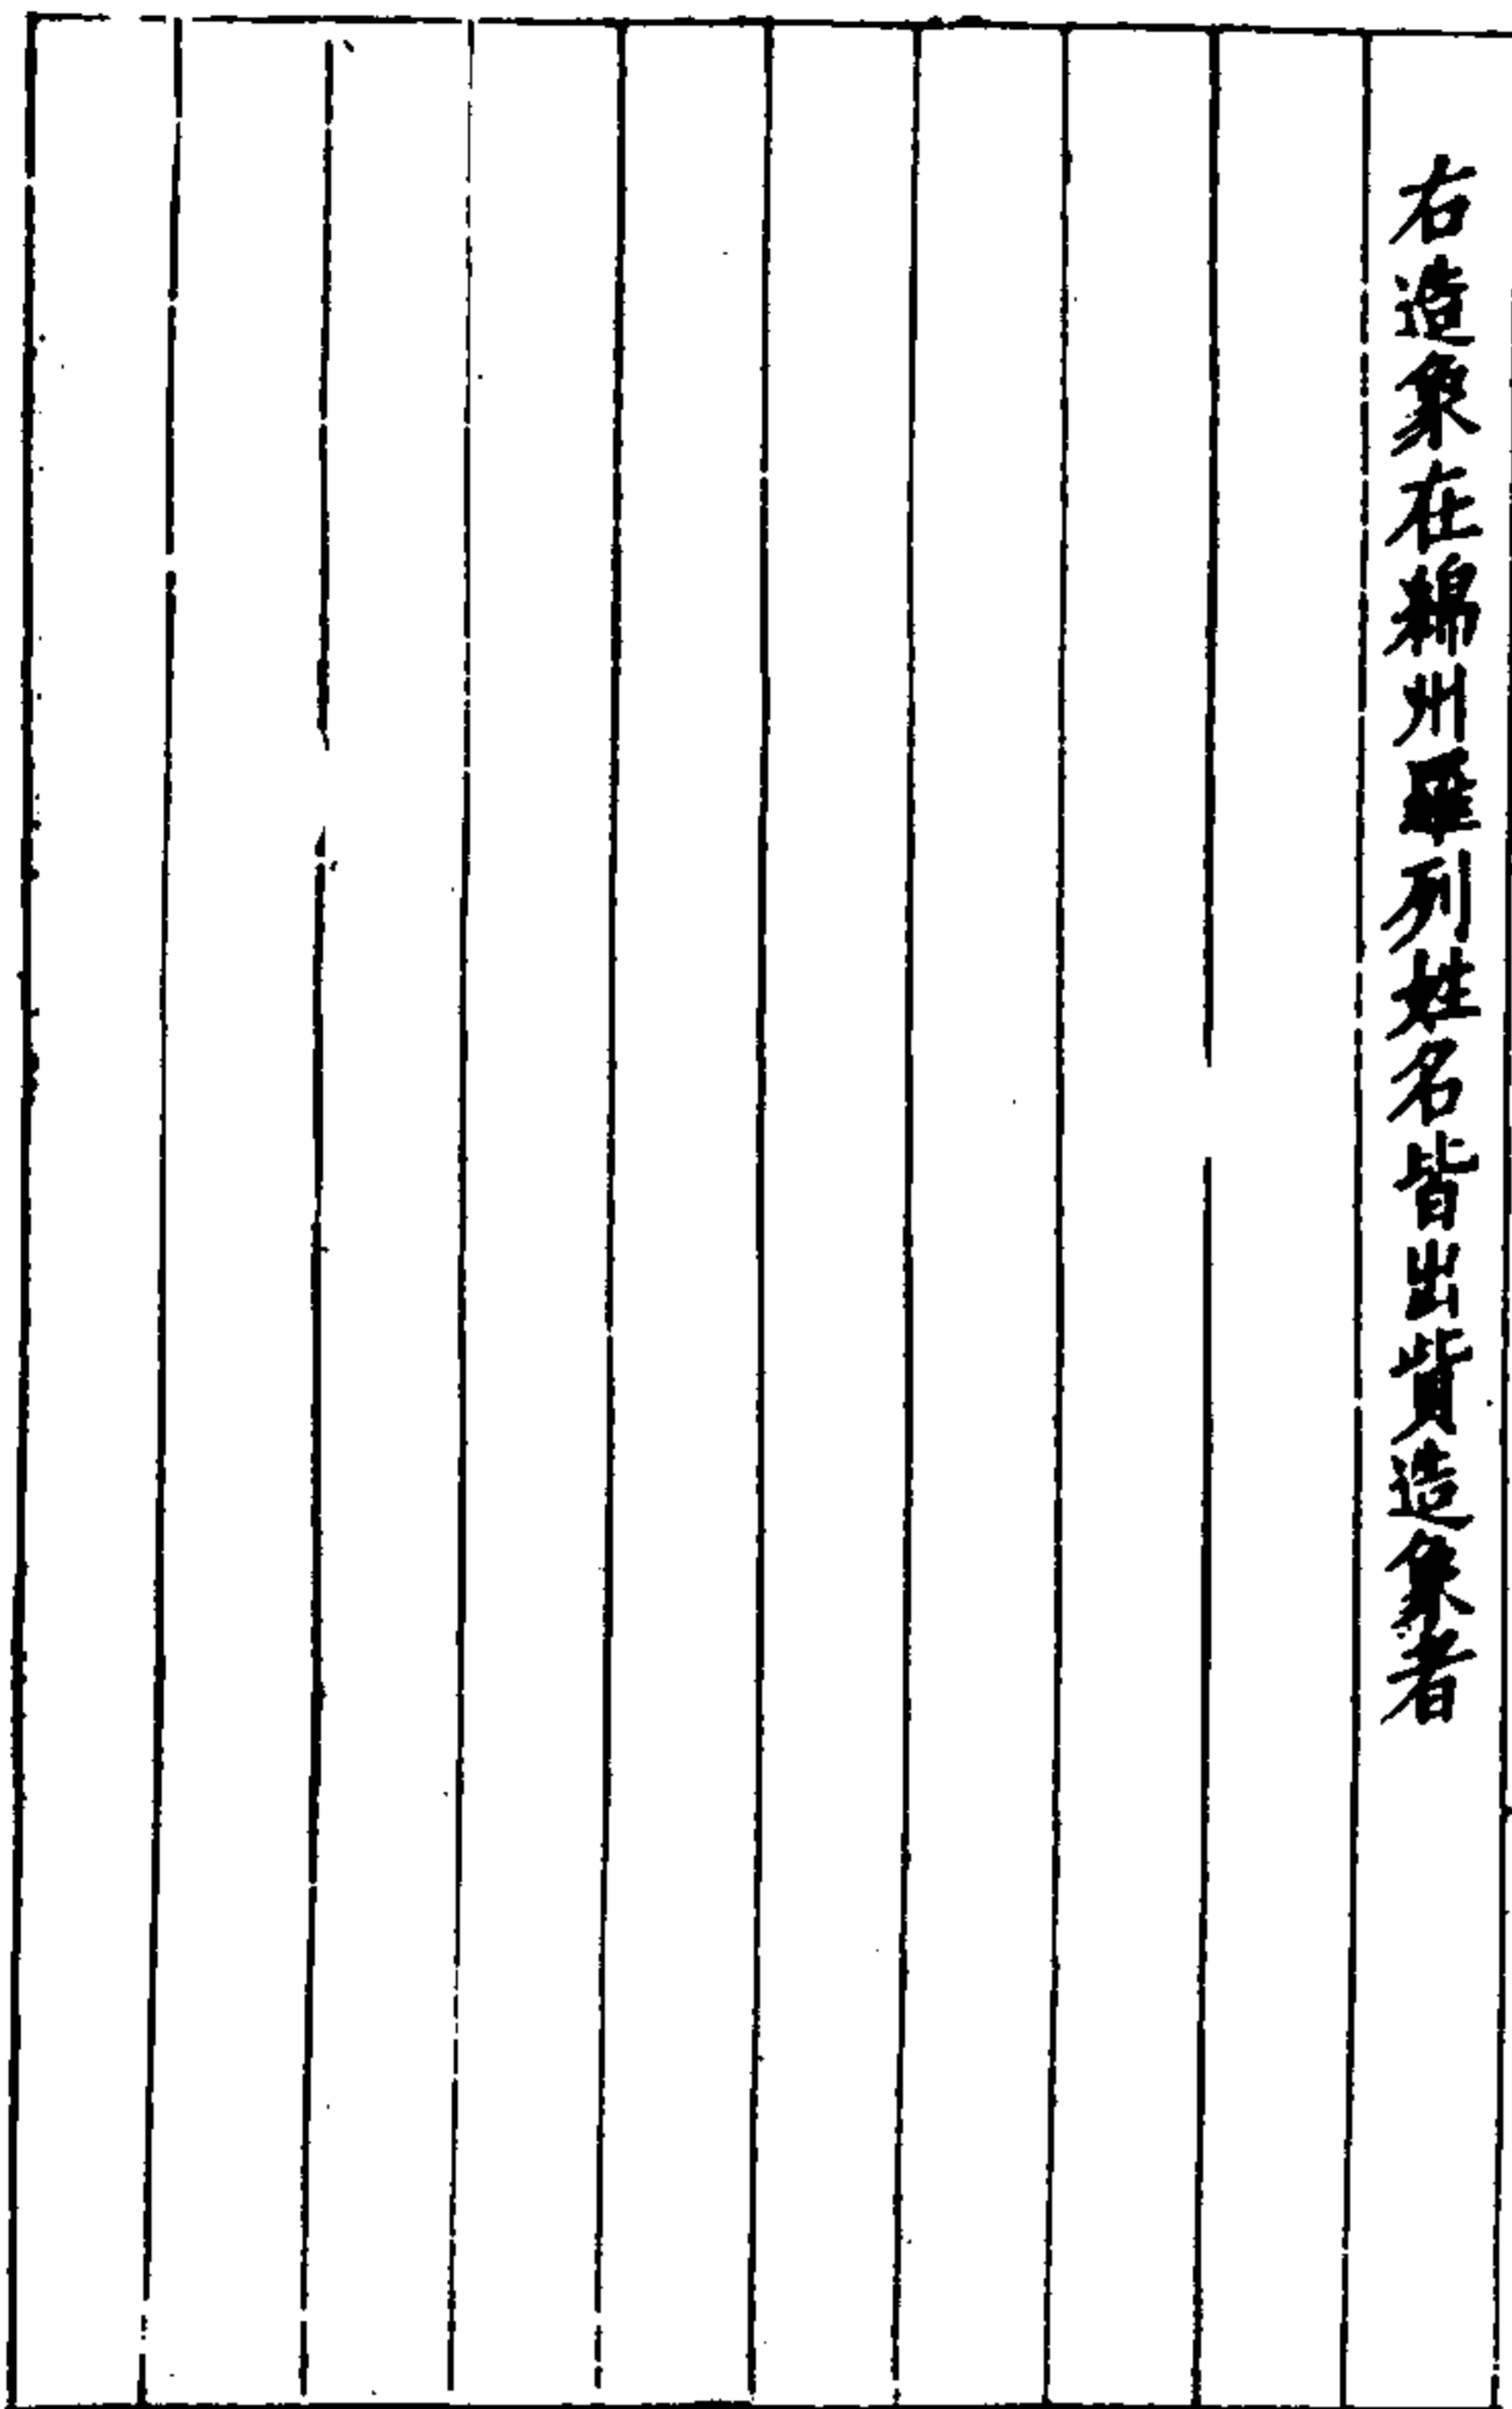 右造象在綿州畢列姓名皆出貲造象者